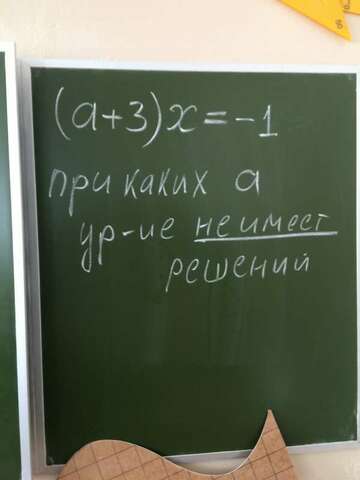 (a+3)x=-1
при каких а
ур-ие не имеет
решений